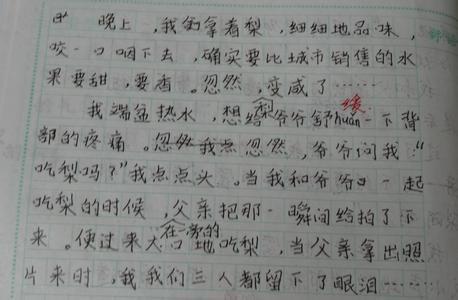 晚上，我们拿着梨，细细地品味，
咬一口咽下去，确实要比城市销售的水
果要甜，要香。忽然，变咸了……
我端盆热水，想给爷爷舒huǎn缓一下背
部的疼痛。忽然，爷爷问我：“
吃梨吗？”我点点头。当我和爷爷一起
吃梨的时候，父亲把那一瞬间给拍了下
来。便过来大口地吃梨，当父亲拿出照
片来时，我们三人都留下了眼泪……